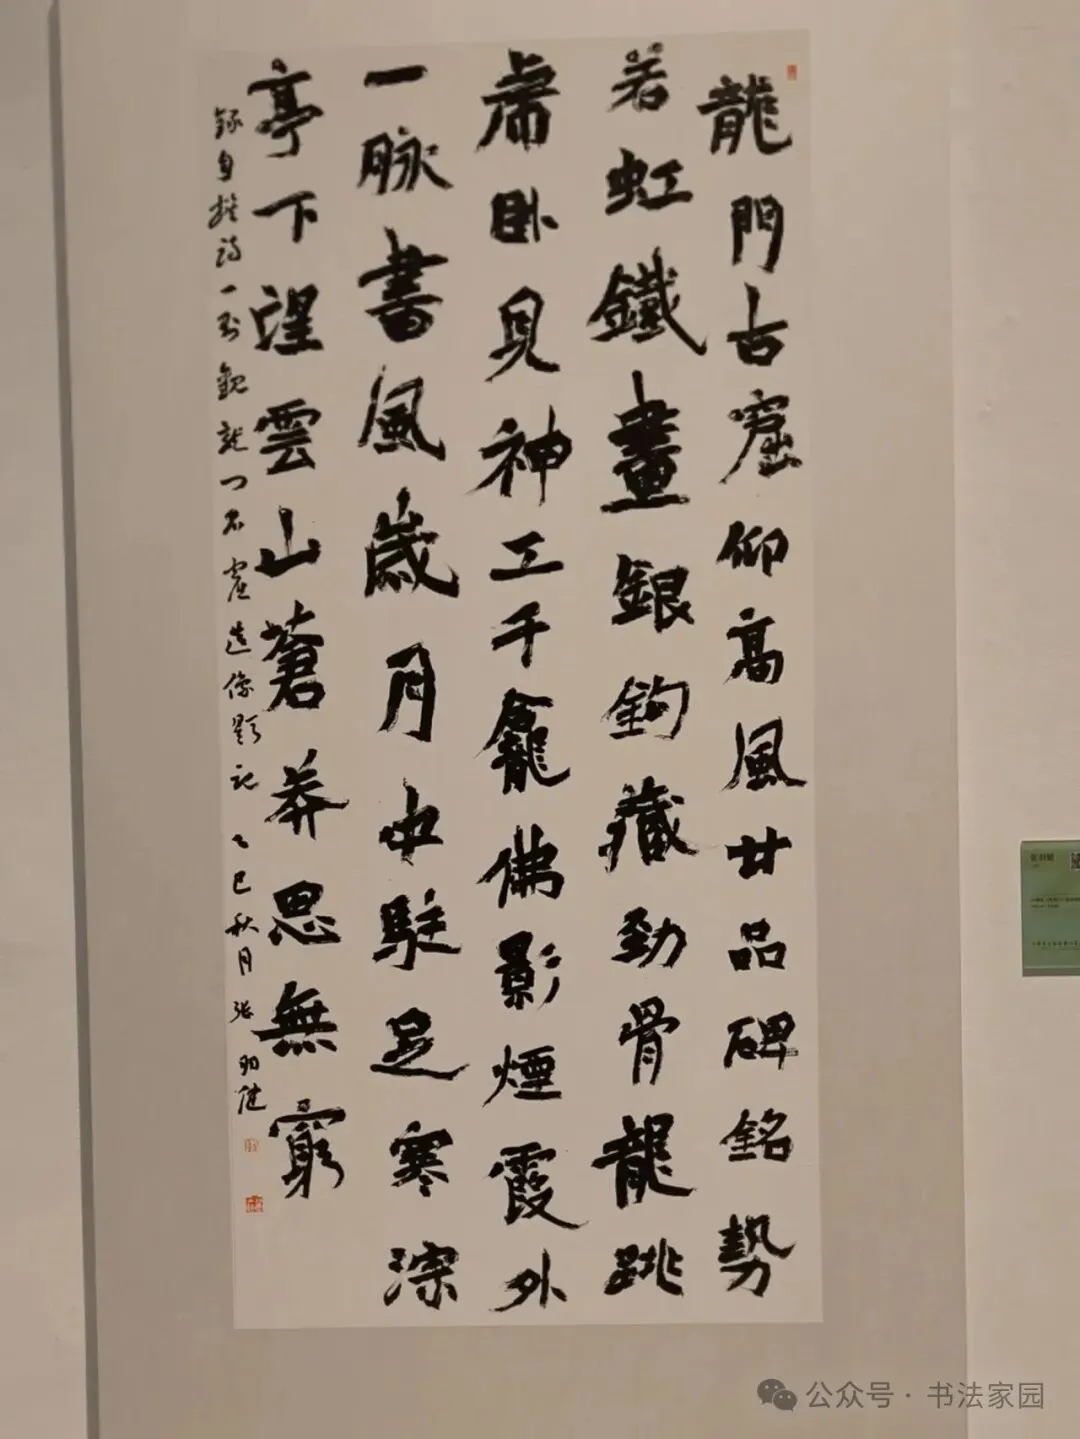 龍門古窟仰高風廿品碑銘勢
若虹鐵畫銀鉤藏勁骨龍跳
虎卧見神工千龕佛影煙霞外
一脉書風歲月中駐足寒深
亭下望雲山蒼莽思無窮
錄自撰詩一首觀龍門石窟造像題記乙巳秋月張羽健
公众号·书法家园